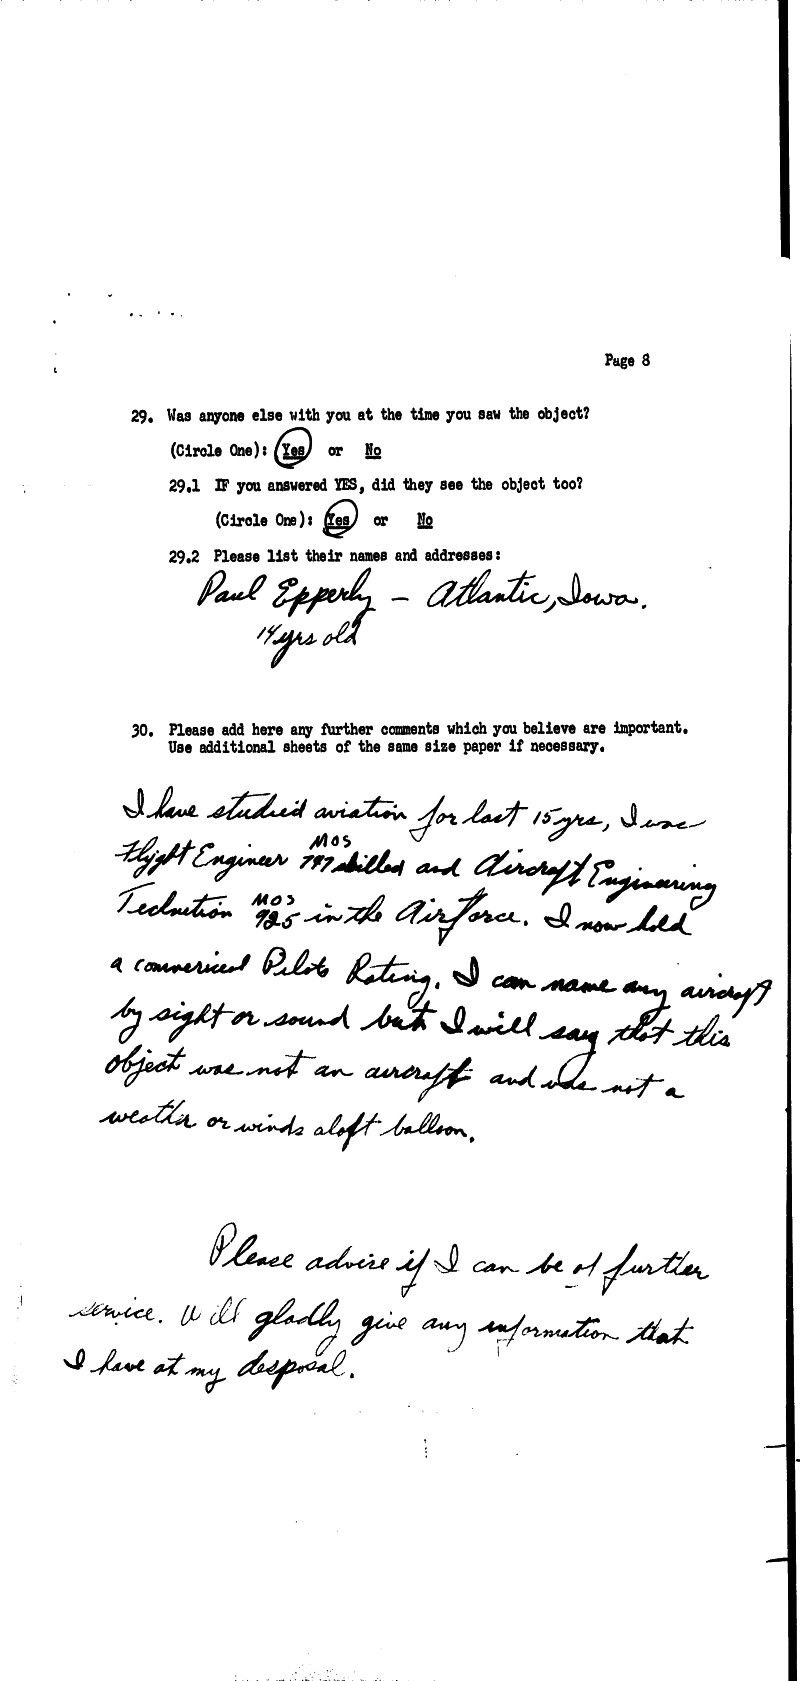 Page 8
29. Was anyone else with you at the time you saw the object?
(Circle One): Yes or No
29.1 IF you answered YES, did they see the object too?
(Circle One): Yes or No
29.2 Please list their names and addresses:
Paul Epperly – Atlantic, Iowa.
14 yrs old
30. Please add here any further comments which you believe are important.
Use additional sheets of the same size paper if necessary.
I have studied aviation for last 15 yrs, I was
MOS
Flight Engineer 747 skilled and Aircraft Engineering
MOS
Technition 925 in the Airforce. I now hold
a commerical Pilots Rating. I can name any aircraft
by sight or sound but I will say that this
object was not an aircraft and was not a
weather or winds aloft balloon.
Please advise if I can be of further
service. Will gladly give any information that
I have at my desposal.